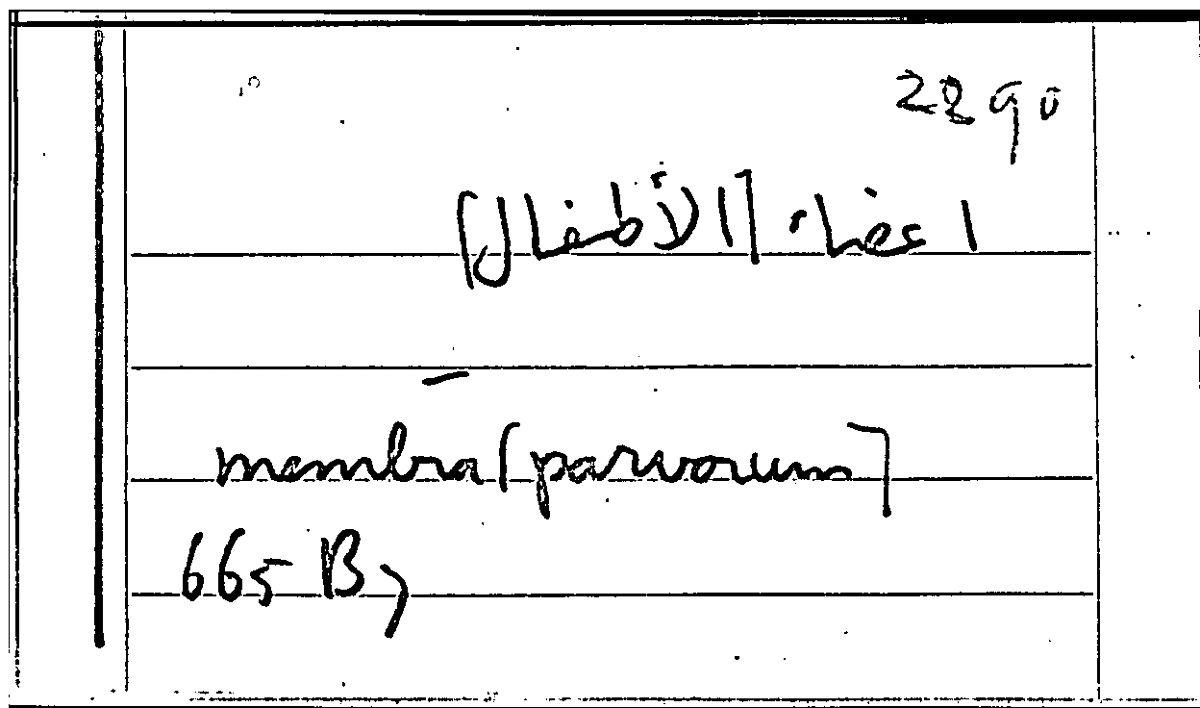 2290
اعضاء [الأطفال]
membra [parvorum]
665 B7